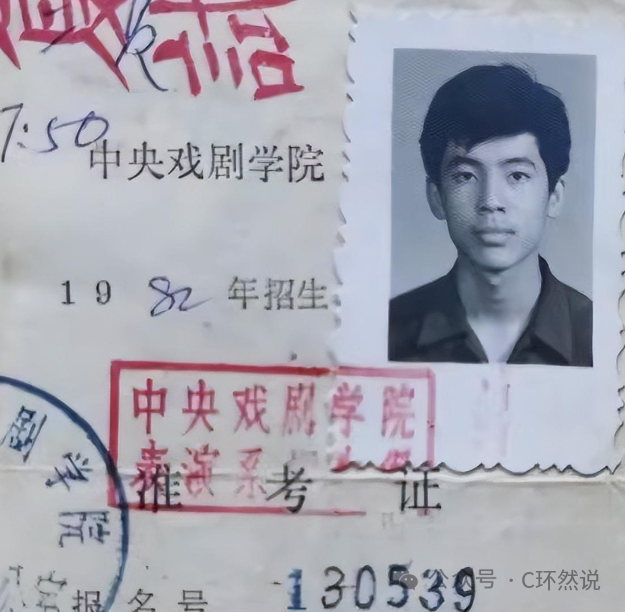 7:50
中央戏剧学院
1982年招生
中央戏剧学院
表演系
准考证
学院
报名号 130539
公众号·C环然说